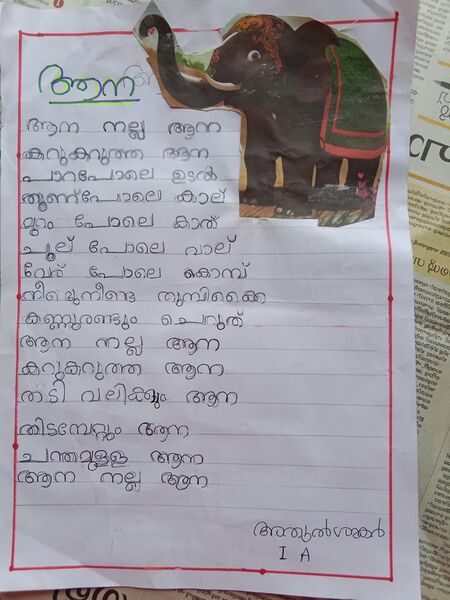 ആന
ആന നല്ല ആന
കറുകറുത്ത ആന
പാറപോലെ ഉടൽ
തൂണ്പോലെ കാല്
മുറം പോലെ കാത്
ചൂല് പോലെ വാല്
വേര് പോലെ കൊമ്പ്
നീളെനീണ്ട തുമ്പിക്കൈ
കണ്ണുരണ്ടും ചെറുത്
ആന നല്ല ആന
കറുകറുത്ത ആന
തടി വലിക്കും ആന
തിടമ്പേറ്റും ആന
ചന്തമുള്ള ആന
ആന നല്ല ആന
I A